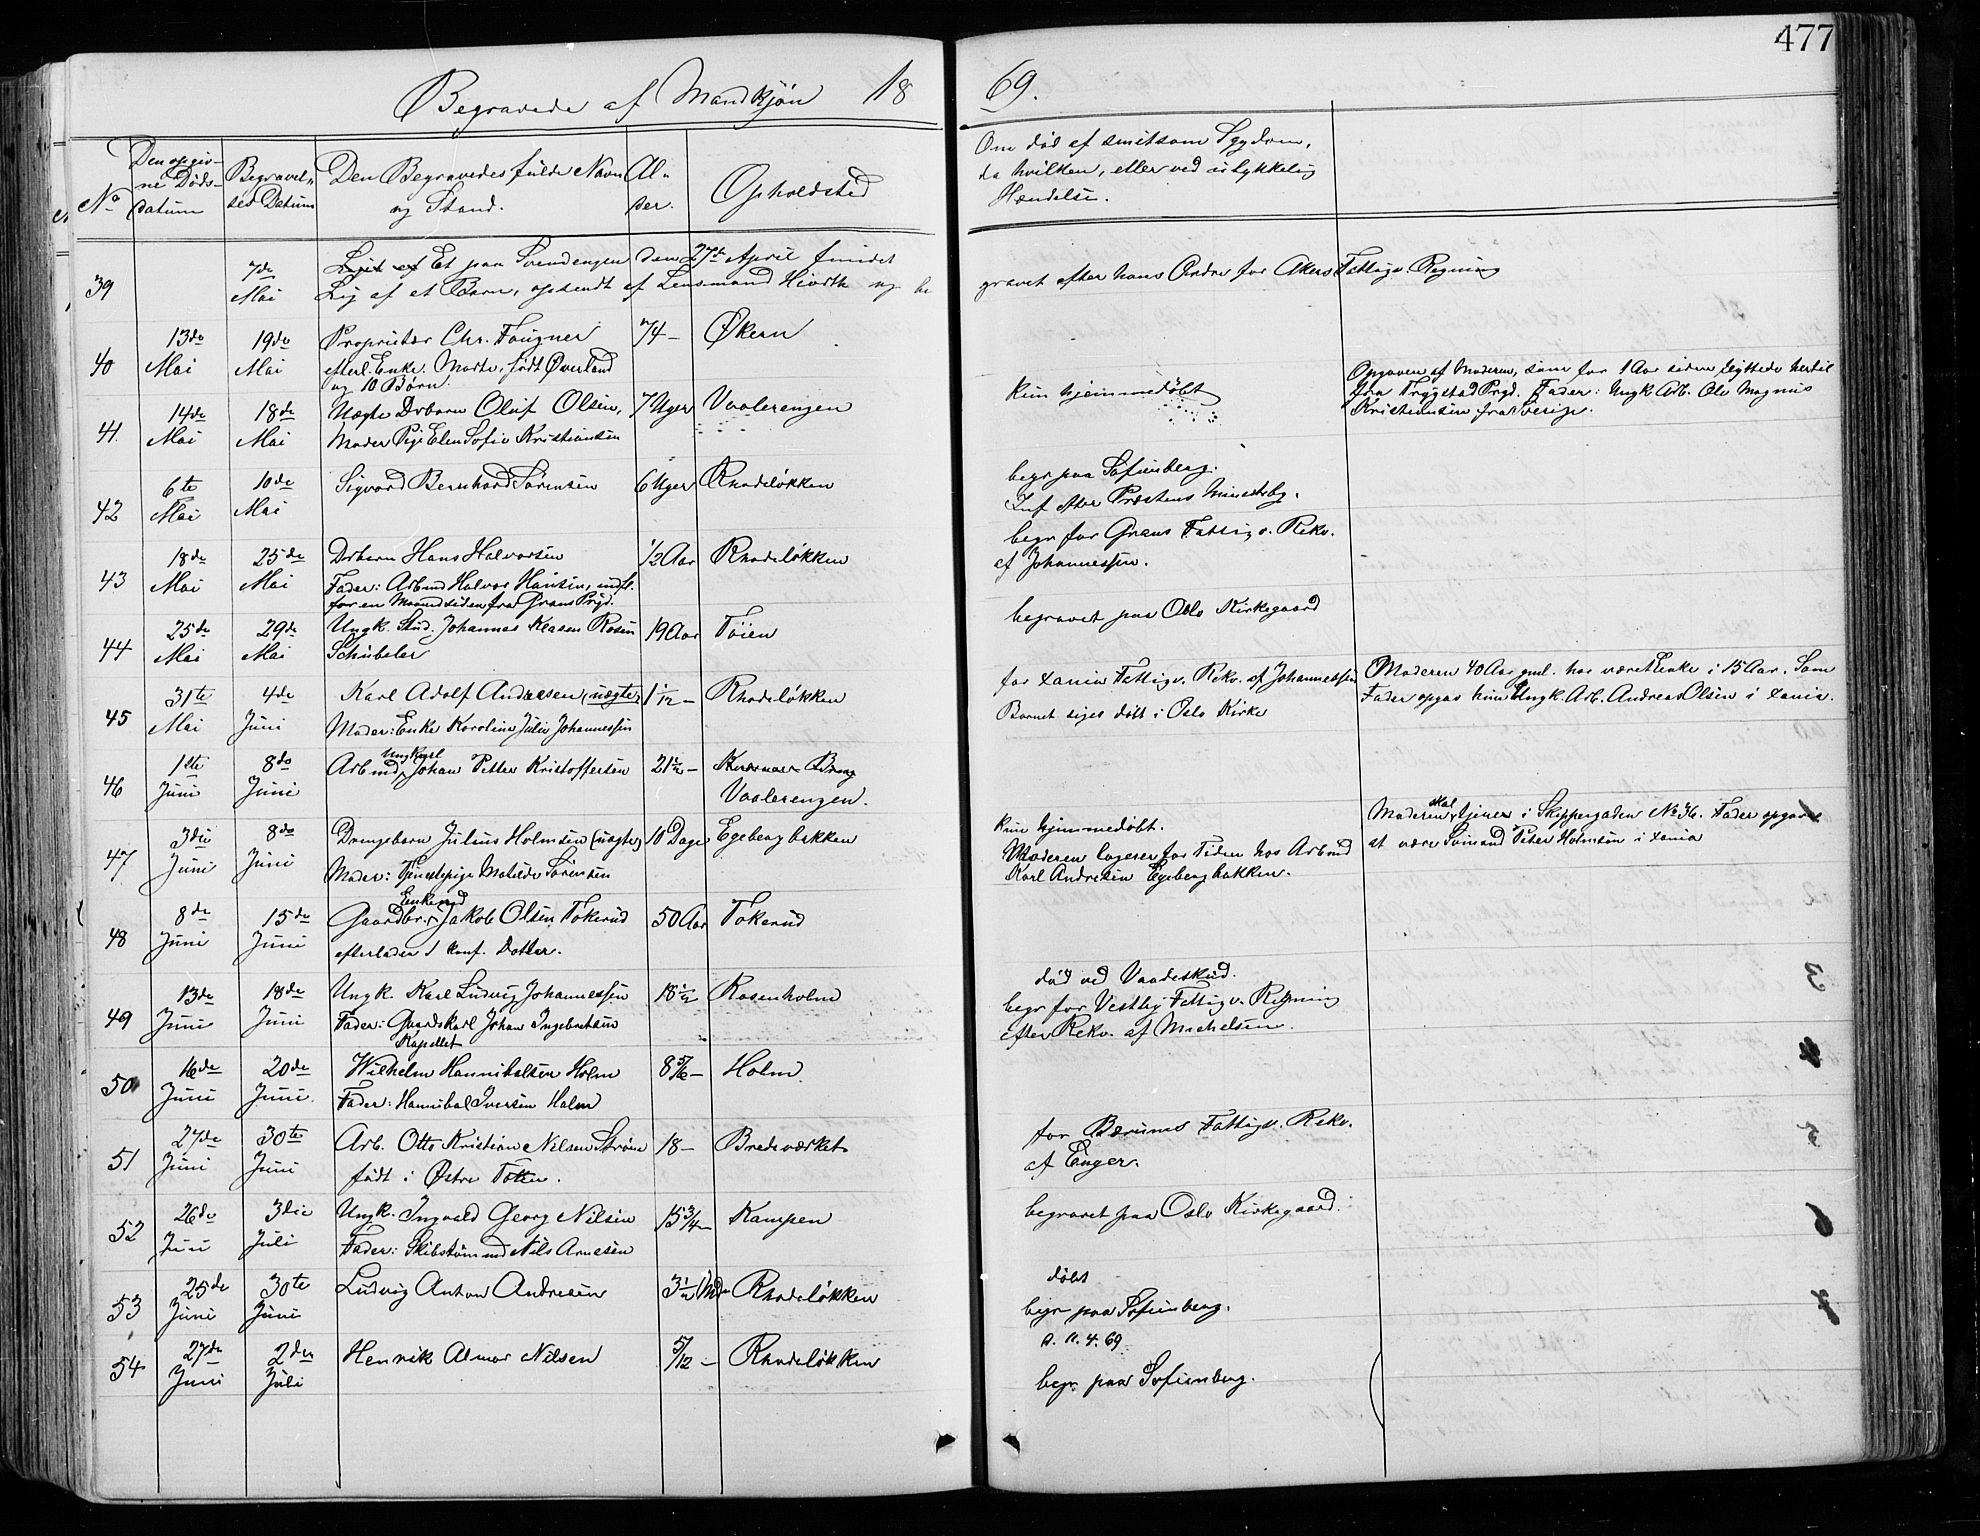 477
Begravede af Mandkjøn 1869.
No
Den opgivne Dødsdatum
Begravelses Datum
Den Begravedes fulde Navn og Stand.
Alder.
Opholdsted
Om død af smitsom Sygdom, da hvilken, eller ved ulykkelig Hændelse.
39 7de Mai Liget af Et paa Svendengen den 27de April fundet
Lig af et Barn, opsendt af Lensmand Hiorth og begravet efter hans Ordre for Akers Fattigv. Regning
40 13de Mai 19de Mai Proprietær Chr. Fougner 74 - Økern
efterl. Enke Marte, født Øverland
og 10 Børn.
41 14de Mai 18de Mai Uægte Drbarn Oluf Olsen, 7 Uger Vaalerengen
Moder Pige Elen Sofie Kristiansen
kun hjemmedøbt
Opgaven af Moderen, som for 1 Aar siden flyttede hertil
fra Trygstad Prgd. Fader: Ungk. Arb. Ole Magnus
Kristensen fra Sverige.
42 6te Mai 10de Mai Sigvard Bernhard Sørensen 6 Uger Rhodeløkken
begr paa Sofienberg.
Inf. efter Præstens
43 18de Mai 25de Mai Drbarn Hans Halvorsen 1/2 Aar Rhodeløkken
Fader: Arbmd Halvor Hansen, indfl.
for en Maaned siden fra Grans Prgd.
begr for Grans Fattigv. Rekv.
af Johannessen.
44 25de Mai 29de Mai Ungk. Stud. Johannes Klasen Rosen 19 Aar Tøien
Schübeler
begravet paa Oslo Kirkegaard
45 31te Mai 4de Juni Karl Adolf Andresen (uægte) 1 1/12 - Rhodeløkken
Moder: Enke Karoline Julie Johannessen
for Xania Fattigv. Rekv. af Johannessen
Barnet siges døbt i Oslo Kirke
Moderen 40 Aar gml. har været Enke i 15 Aar. Som
Fader opgav hun Ungk. Arb. Andreas Olsen i Xania.
46 1ste Juni 8de Juni Arbmd Ungkarl Johan Petter Kristoffersen 21 1/2 - Kværner Brug
Vaalerengen.
47 3die Juni 8de Juni Drengebarn Julius Holmsen (uægte) 10 Dage Egebergbakken
Moder: Tjenestepige Matilde Sørensen
kun hjemmedøbt.
Moderen logerer for Tiden hos Arbmd
Karl Andresen Egebergbakken.
Moderen skal tjener i Skippergaden No 36. Fader opgaves
at være Sømand Peter Holmsen i Xania
48 8de Juni 15de Juni Gaardbr. Enkemd Jakob Olsen Tokerud 50 Aar Tokerud
efterlader 1 konf. Dotter.
49 13de Juni 18de Juni Ungk. Karl Ludvig Johannessen 18 1/2 - Rosenholm
Fader: Gaardskarl Johan Ingebretsen
Kapellet
død ved Vaadeskud.
begr for Vestby Fattigv. Regning
efter Rekv. af Michelsen.
50 16de Juni 20de Juni Wilhelm Hannibalsen Holm 8 5/6 - Holm
Fader: Hannibal Iversen Holm
51 27de Juni 30te Juni Arb. Otto Kristian Nilsen Strøm 18 - Bredeværket
født i Østre Toten.
for Bærums Fattigv. Rekv.
af Enger.
52 26de Juni 3die Juli Ungk. Ingvald Georg Nilsen 15 3/4 - Kampen
Fader: Skibstømmd Nils Arnesen
begravet paa Oslo Kirkegaard.
53 25de Juni 30te Juni Ludvig Anton Andresen 3 1/2 Md - Rhodeløkken
døbt
begr paa Sofienberg.
54 27de Juni 2den Juli Henrik Almar Nilsen 5/12 - Rhodeløkken
D. 11. 4. 69.
begr. paa Sofienberg.